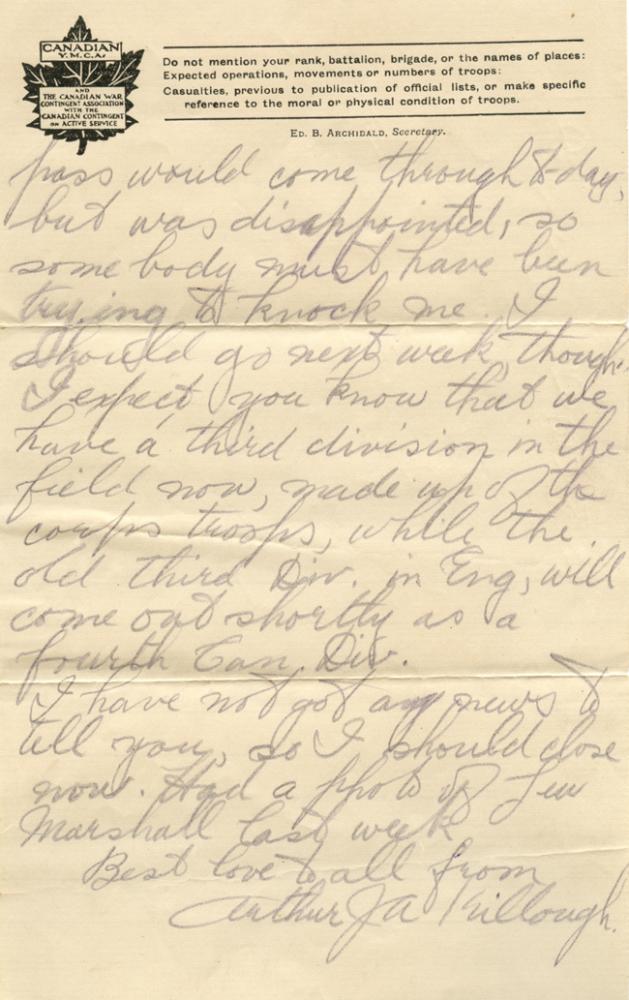 CANADIAN
Y.M.C.A.
AND
THE CANADIAN WAR
CONTINGENT ASSOCIATION
WITH THE
CANADIAN CONTINGENT
ON ACTIVE SERVICE
Do not mention your rank, battalion, brigade, or the names of places:
Expected operations, movements or numbers of troops:
Casualties, previous to publication of official lists, or make specific
reference to the moral or physical condition of troops.
ED. B. ARCHIBALD, Secretary.
pass would come through to-day,
but was disappointed, so
some body must have been
trying to knock me. I
should go next week, though.
I expect you know that we
have a third division in the
field now, made up of the
corps troops, while the
old third Div. in Eng, will
come out shortly as a
fourth Can. Div.
I have not got any news to
tell you, so I should close
now. Had a photo of Lew
Marshall last week
Best love to all from
Arthur J A Killough.